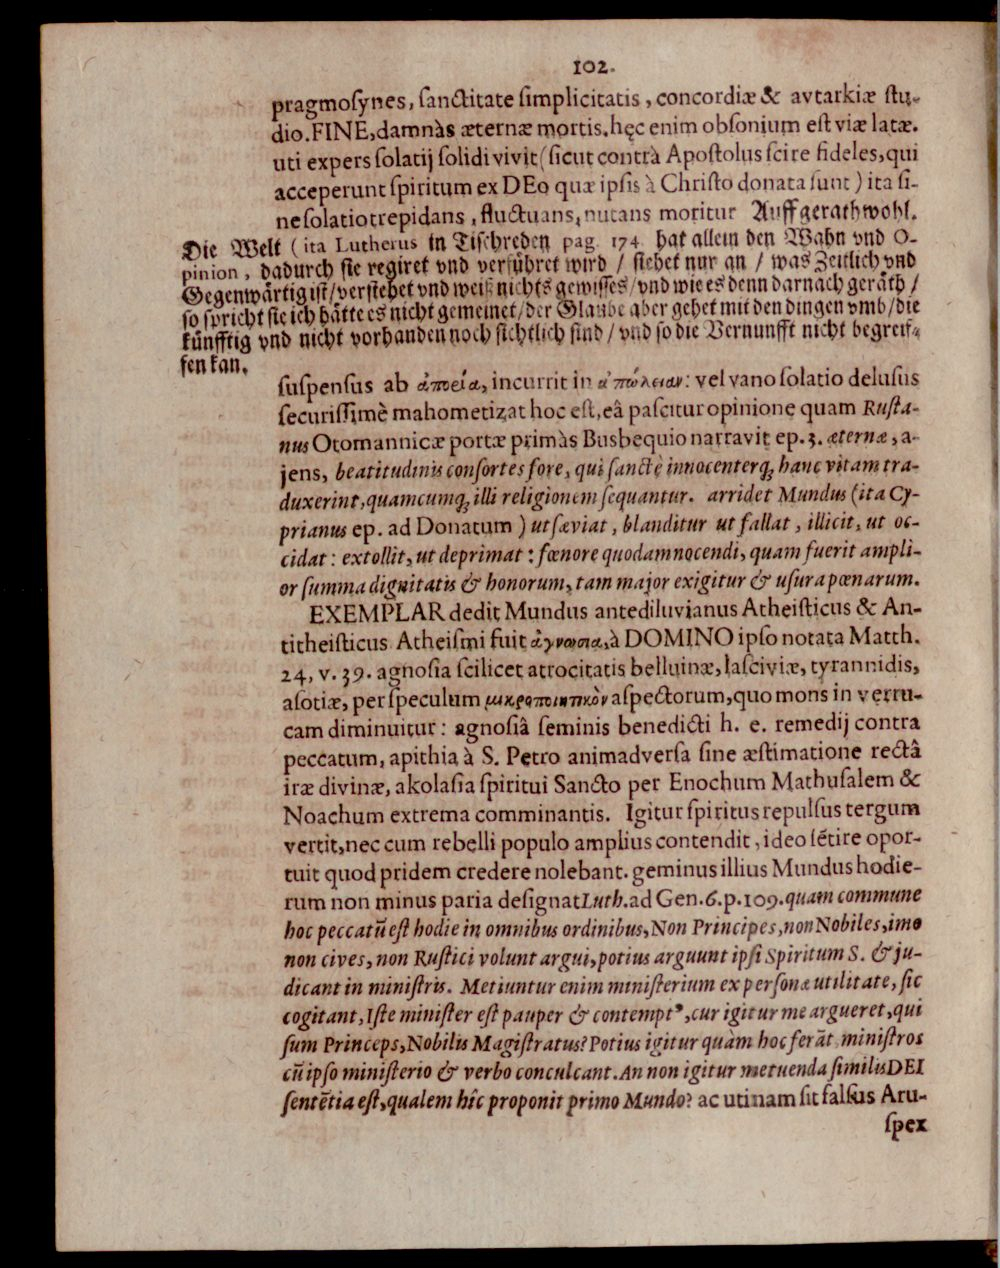 102.
pragmoſynes, ſanctitate ſimplicitatis, concordiæ & avtarkiæ ſtu-
dio. FINE, damnàs æternæ mortis. hęc enim obſonium eſt viæ latæ.
uti expers ſolatij ſolidi vivit (ſicut contrà Apoſtolus ſcire fideles, qui
acceperunt ſpiritum ex DEo quæ ipſis à Chriſto donata ſunt) ita ſi-
ne ſolatio trepidans, fluctuans, nutans moritur Auff gerathwohl.
Die Welt (ita Lutherus in Tiſchreden pag. 174. hat allein den Wahn vnd O-
pinion, dadurch ſie regiret vnd verführet wird / ſiehet nur an / was Zeitlich vnd
Gegenwärtig iſt / verſtehet vnd weiß nichts gewiſſes / vnd wie es denn darnach geräth /
ſo ſpricht ſie ich hätte es nicht gemeinet / der Glaube aber gehet mit den dingen vmb / die
künfftig vnd nicht vorhanden noch ſichtlich ſind / vnd ſo die Vernunfft nicht begreif-
fen kan.
ſuſpenſus ab ἀπιεία, incurrit in ἀπώλειαν: vel vano ſolatio deluſus
ſecuriſſimè mahometizat hoc eſt, eâ paſcitur opinione quam Ruſta-
nus Otomannicæ portæ primàs Busbequio narravit ep. 3. æternæ, a-
jens, beatitudinis conſortes fore, qui ſanctè innocenterq; hanc vitam tra-
duxerint, quamcumq; illi religionem ſequantur. arridet Mundus (ita Cy-
prianus ep. ad Donatum) ut ſæviat, blanditur ut fallat, illicit, ut oc-
cidat: extollit, ut deprimat: fœnore quodam nocendi, quam fuerit ampli-
or ſumma dignitatis & honorum, tam major exigitur & uſura pœnarum.
EXEMPLAR dedit Mundus antediluvianus Atheiſticus & An-
titheiſticus Atheiſmi fuit ἀγνωσια, à DOMINO ipſo notata Matth.
24, v. 39. agnoſia ſcilicet atrocitatis belluinæ, laſciviæ, tyrannidis,
aſotiæ, per ſpeculum μικροποιητικὸν aſpectorum, quo mons in verru-
cam diminuitur: agnoſiâ ſeminis benedicti h. e. remedij contra
peccatum, apithia à S. Petro animadverſa ſine æſtimatione rectâ
iræ divinæ, akolaſia ſpiritui Sancto per Enochum Mathuſalem &
Noachum extrema comminantis. Igitur ſpiritus repulſus tergum
vertit, nec cum rebelli populo amplius contendit, ideo ſẽtire opor-
tuit quod pridem credere nolebant. geminus illius Mundus hodie-
rum non minus paria deſignat Luth. ad Gen. 6. p. 109. quam commune
hoc peccatũ eſt hodie in omnibus ordinibus, Non Principes, non Nobiles, imo
non cives, non Ruſtici volunt argui, potius arguunt ipſi Spiritum S. & ju-
dicant in miniſtris. Metiuntur enim miniſterium ex perſonæ utilitate, ſic
cogitant, Iſte miniſter eſt pauper & contemptꝰ, cur igitur me argueret, qui
ſum Princeps, Nobilis Magiſtratus? Potius igitur quàm hoc ferãt miniſtros
cũ ipſo miniſterio & verbo conculcant. An non igitur metuenda ſimilis DEI
ſentẽtia eſt, qualem hîc proponit primo Mundo? ac utinam ſit falſus Aru-
ſpex